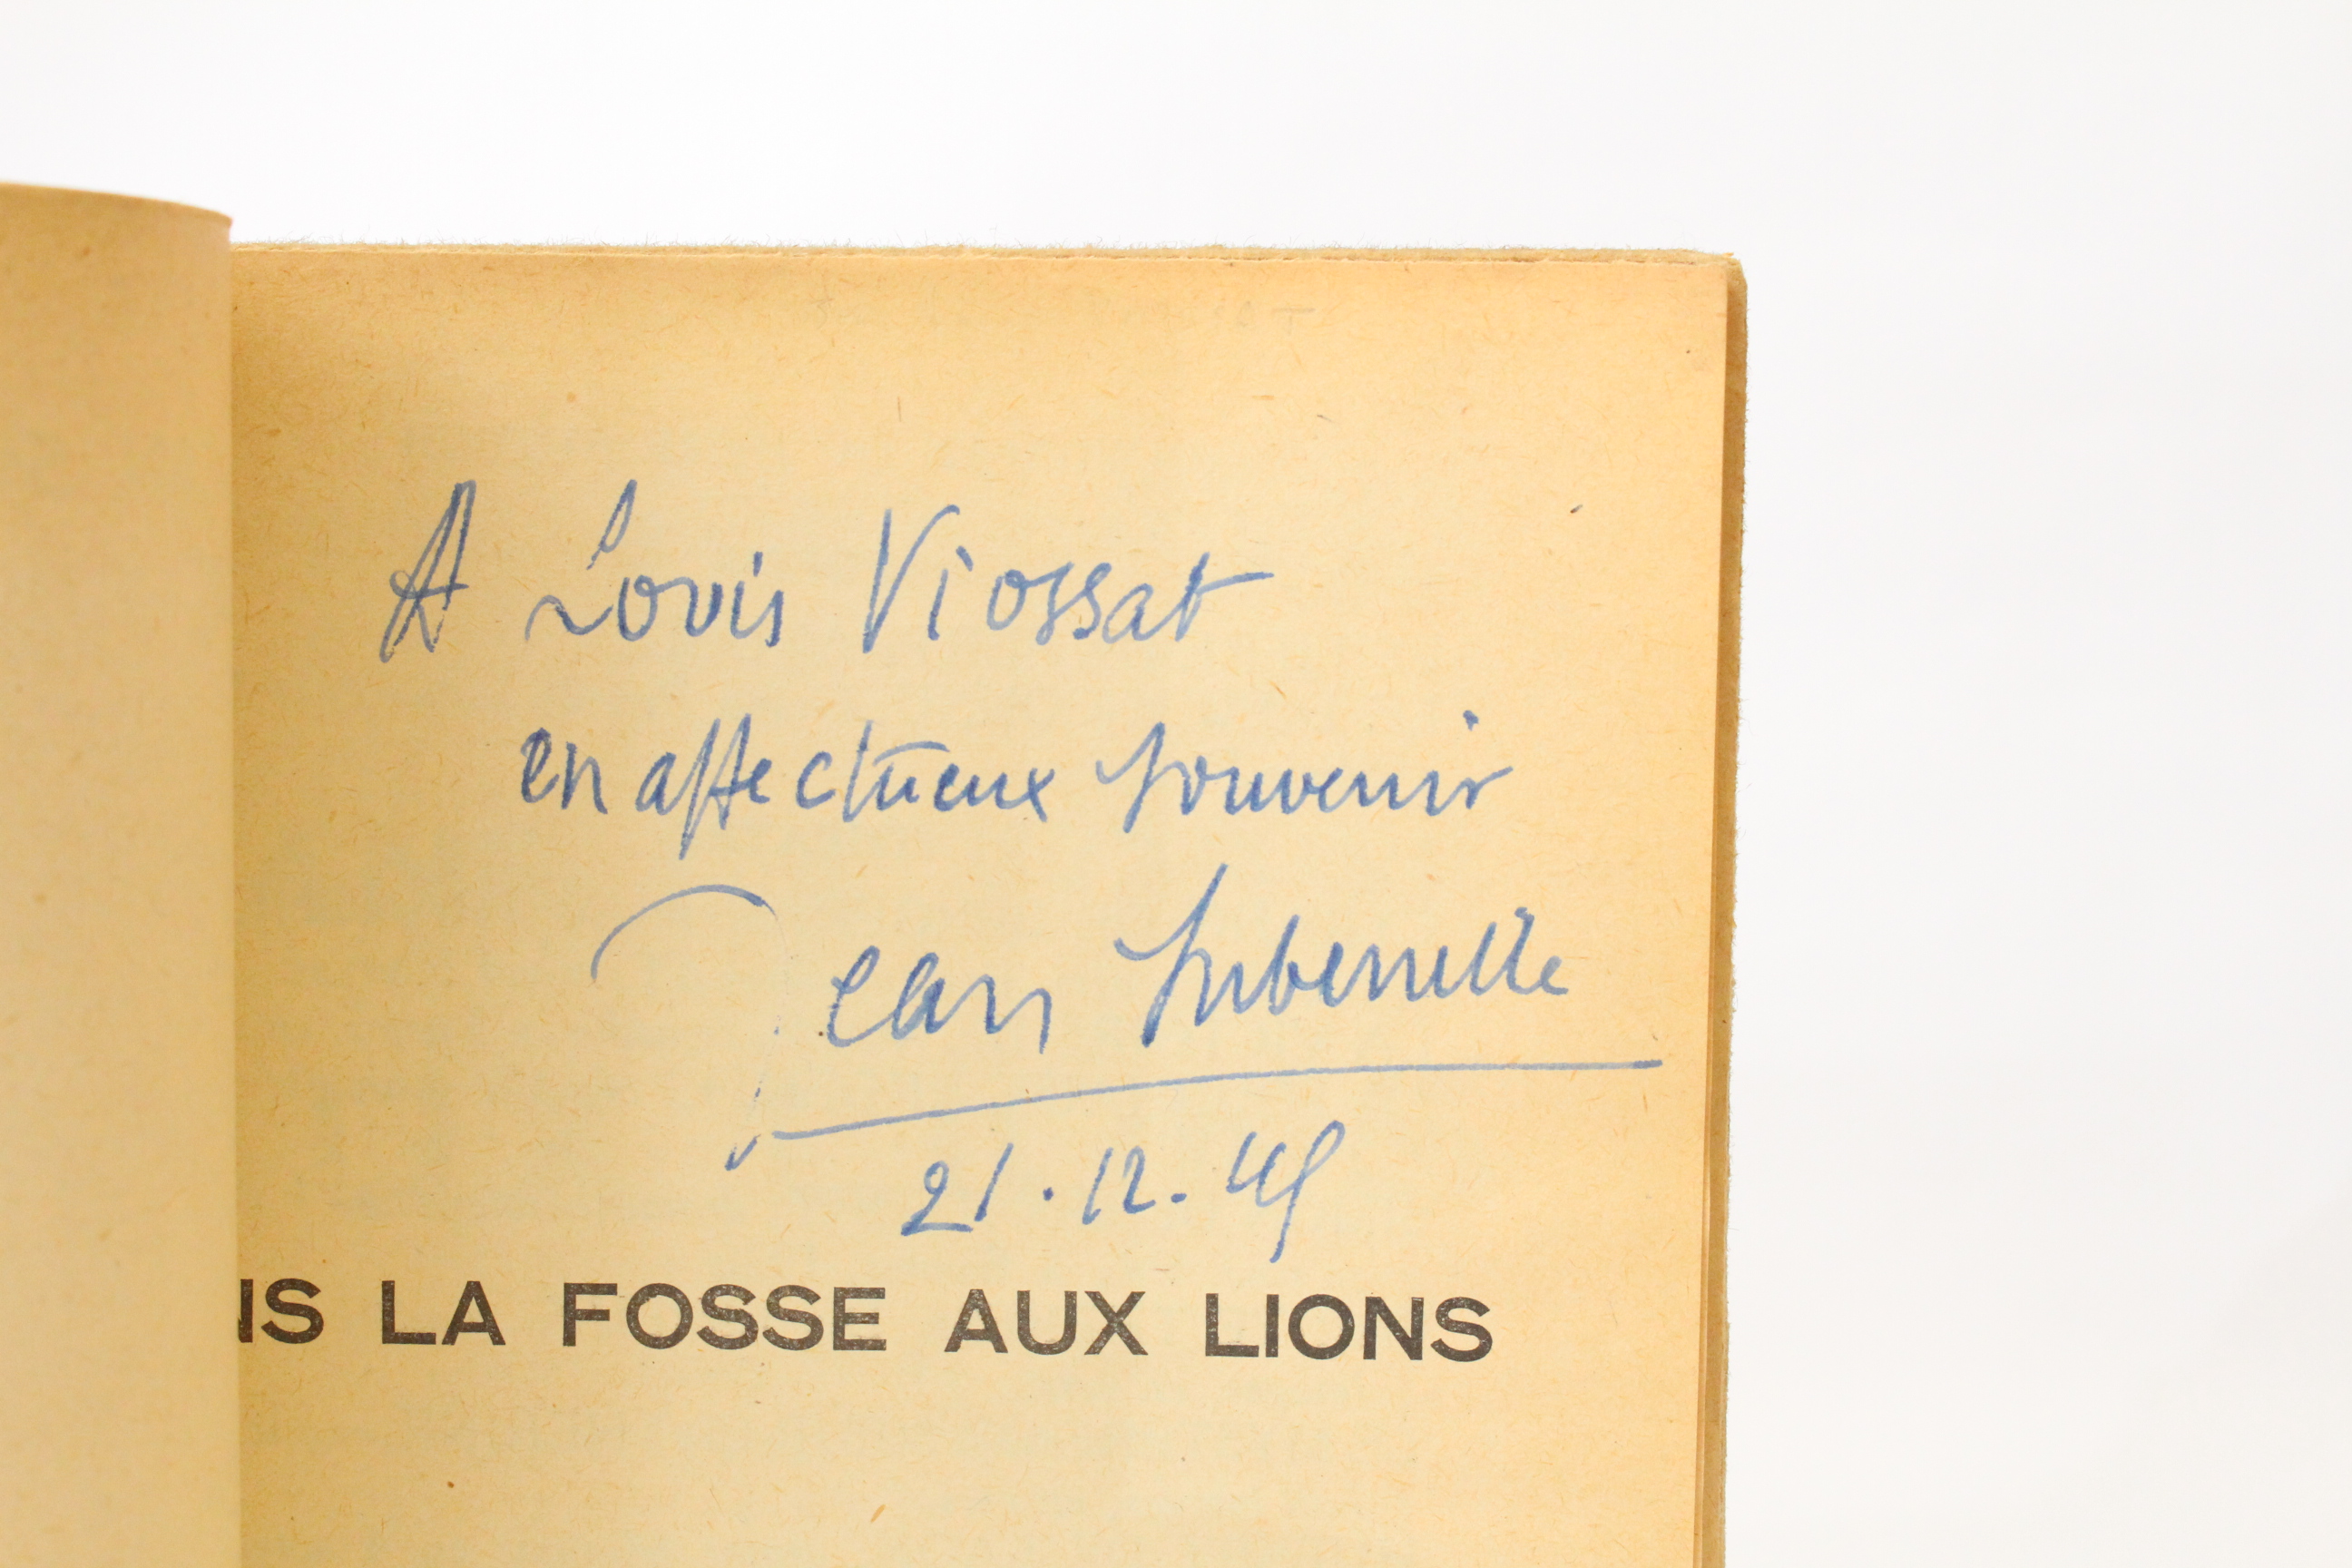 A Louis Viossat
en affectueux souvenir
Jean Subervielle
21.12.45
NS LA FOSSE AUX LIONS